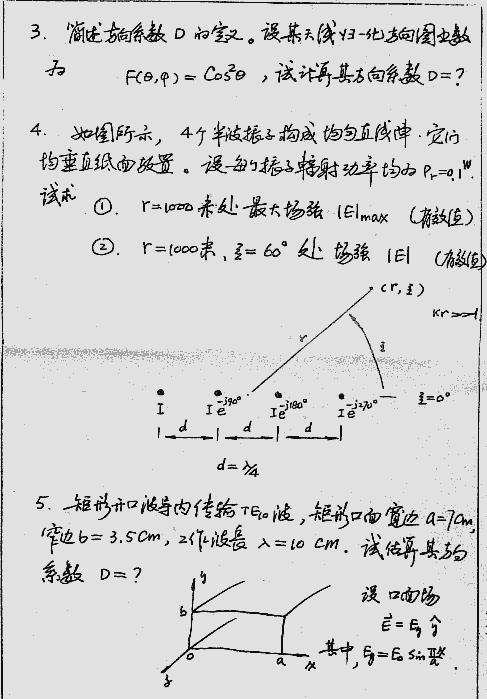 3. 简述方向系数 D 的定义。设某天线归一化方向图函数
为 F(θ,φ) = Cos²θ , 试计算其方向系数 D=?
4. 如图所示, 4个半波振子构成均匀直线阵. 它们
均垂直纸面放置。设每个振子辐射功率均为 Pr=0.1W.
试求
①. r=1000米处 最大场强 |E|max (有效值)
②. r=1000米, ξ=60° 处 场强 |E| (有效值)
(r, ξ)
Kr>>1
r
ξ
I Ie^{-j90°} Ie^{-j180°} Ie^{-j270°} ξ=0°
d d d
d=λ/4
5. 矩形开口波导内传输TE₁₀波, 矩形口面宽边 a=7cm,
窄边 b=3.5cm, 工作波长 λ=10 cm. 试估算其方向
系数 D=?
y
b
o a x
z
设 口面场
E⃗ = Ey ŷ
其中, Ey=E₀ sin πx/a .